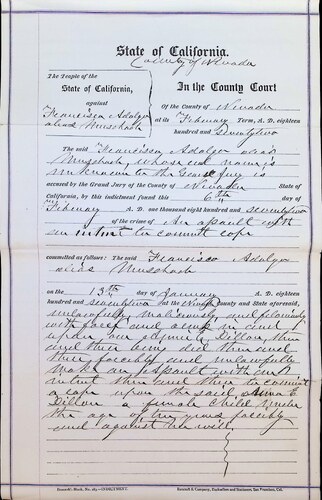 State of California.
County of Nevada
The People of the
State of California,
against
Francisco Adalgo
alias Muschash
In the County Court
Of the County of Nevada
at its February Term, A. D. eighteen
hundred and seventy two
The said Francisco Adalgo alias
whose real name is
unknown to the Grand Jury is
accused by the Grand Jury of the County of Nevada State of
California, by this indictment found this 6th day of
February A. D. one thousand eight hundred and seventy two
of the crime of An assault with
an intent to commit rape
committed as follows: The said Francisco Adalgo
alias Muschash
on the 13th day of January A. D. eighteen
hundred and seventy two at the County and State aforesaid,
unlawfully, maliciously and feloniously
with force and arms in and
upon one Dillon, then
and there being did then and
there forcibly and unlawfully
make an assault with an
intent then and there to commit
a rape upon the said
Dillon a female child under
the age of ten years forcibly
and against her will
Bancroft & Company, Booksellers and Stationers, San Francisco, Cal.